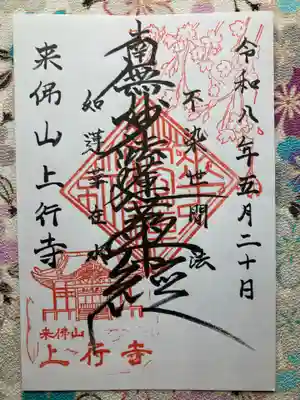 令和八年五月二十日
不染世間法
南無妙法蓮華経
如蓮華在水
来佛山上行寺
来佛山
上行寺